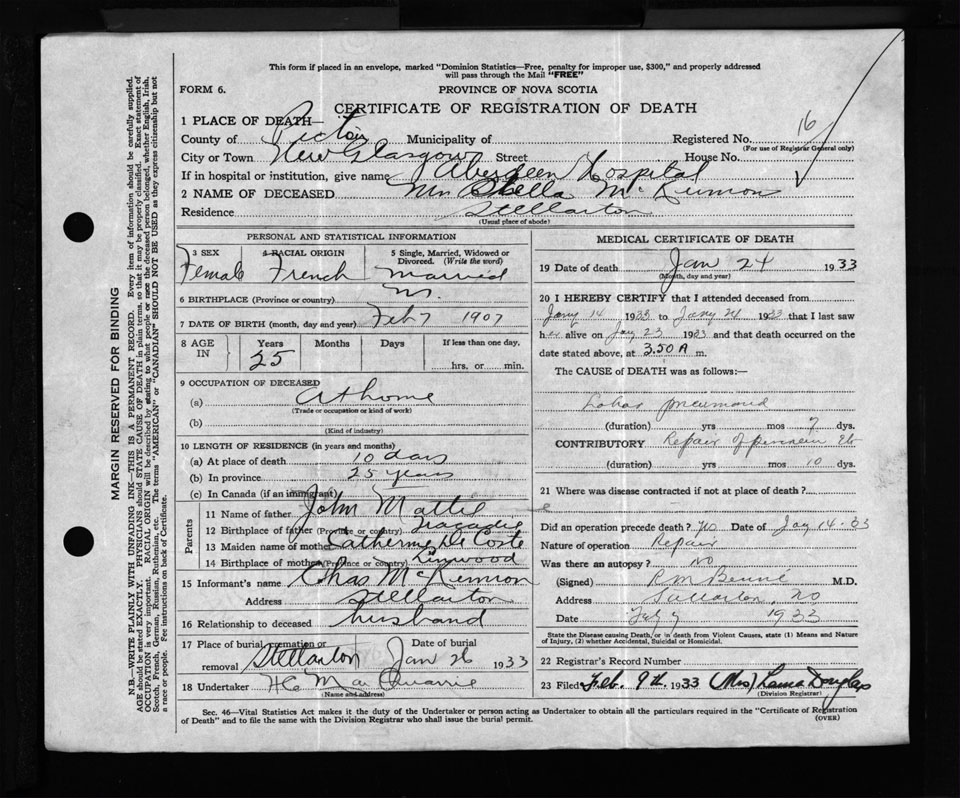 This form if placed in an envelope, marked "Dominion Statistics—Free, penalty for improper use, $300," and properly addressed
will pass through the Mail "FREE"
FORM 6. PROVINCE OF NOVA SCOTIA
CERTIFICATE OF REGISTRATION OF DEATH
1 PLACE OF DEATH—
County of Pictou Municipality of Registered No. 16
(For use of Registrar General only)
City or Town New Glasgow Street House No.
If in hospital or institution, give name Aberdeen Hospital
2 NAME OF DECEASED Mrs Stella McKinnon
Residence Stellarton
(Usual place of abode)
MARGIN RESERVED FOR BINDING
N.B.—WRITE PLAINLY WITH UNFADING INK—THIS IS A PERMANENT RECORD. Every item of information should be carefully supplied.
AGE should be stated EXACTLY. PHYSICIANS should STATE CAUSE OF DEATH in plain terms, so that it may be properly classified. Exact statement of
OCCUPATION is very important. RACIAL ORIGIN will be described by stating to what people or race the deceased person belonged, whether English, Irish,
Scotch, French, German, Russian, Ruthenian, etc. The terms "AMERICAN" or "CANADIAN" SHOULD NOT BE USED as they express citizenship but not
a race or people. Fee instructions on back of Certificate.
PERSONAL AND STATISTICAL INFORMATION
3 SEX 4 RACIAL ORIGIN 5 Single, Married, Widowed or
Divorced. (Write the word)
Female French Married
6 BIRTHPLACE (Province or country)
7 DATE OF BIRTH (month, day and year) Feb 7 1907
8 AGE IN Years Months Days If less than one day,
25 hrs. or min.
9 OCCUPATION OF DECEASED
(a) At home
(Trade or occupation or kind of work)
(b)
(Kind of industry)
10 LENGTH OF RESIDENCE (in years and months)
(a) At place of death 10 days
(b) In province 25 years
(c) In Canada (if an immigrant)
Parents
11 Name of father John Mattie
12 Birthplace of father (Province or country) Tracadie
13 Maiden name of mother Catherine De Coste
14 Birthplace of mother (Province or country) Linwood
15 Informant's name Chas McKinnon
Address Stellarton
16 Relationship to deceased husband
17 Place of burial, cremation or Date of burial
removal Stellarton Jan 26 1933
18 Undertaker H C MacQuarrie
(Name and address)
MEDICAL CERTIFICATE OF DEATH
19 Date of death Jan 24 1933
(Month, day and year)
20 I HEREBY CERTIFY that I attended deceased from
Jany 14 1933 to Jany 24 1933 that I last saw
her alive on Jay 23 1933 and that death occurred on the
date stated above, at 3.50 A m.
The CAUSE of DEATH was as follows:—
Lobar pneumonia
(duration) yrs mos 7 dys.
CONTRIBUTORY Repair of perineum Etc
(duration) yrs mos 10 dys.
21 Where was disease contracted if not at place of death?
Did an operation precede death? Date of Jay 14-33
Nature of operation Repair
Was there an autopsy? No
(Signed) M.D.
Address Stellarton, NS
Date Feb 9 1933
State the Disease causing Death, or in death from Violent Causes, state (1) Means and Nature
of Injury, (2) whether Accidental, Suicidal or Homicidal.
22 Registrar's Record Number
23 Filed Feb. 9th. 1933 (Mrs) Lama Douglas
(Division Registrar)
Sec. 46—Vital Statistics Act makes it the duty of the Undertaker or person acting as Undertaker to obtain all the particulars required in the "Certificate of Registration
of Death" and to file the same with the Division Registrar who shall issue the burial permit. (OVER)